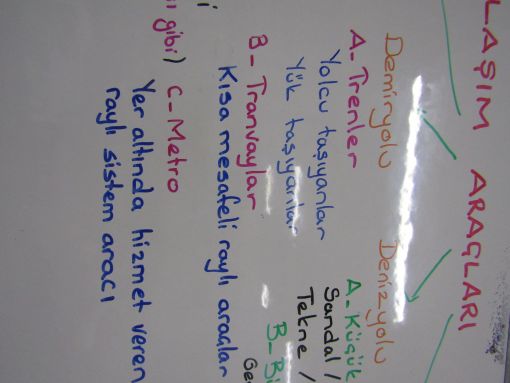 LAŞIM ARAÇLARI
Demiryolu
A-Trenler
Yolcu taşıyanlar
Yük taşıyanlar
B-Tranvaylar
Kısa mesafeli raylı araçlar
gibi) C-Metro
Yer altında hizmet veren
raylı sistem aracı
Denizyolu
A-Küçük
Sandal /
Tekne /